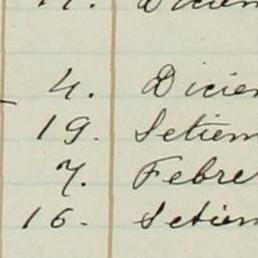 4. Dicie
19. Setiem
7. Febre
16. Setiem